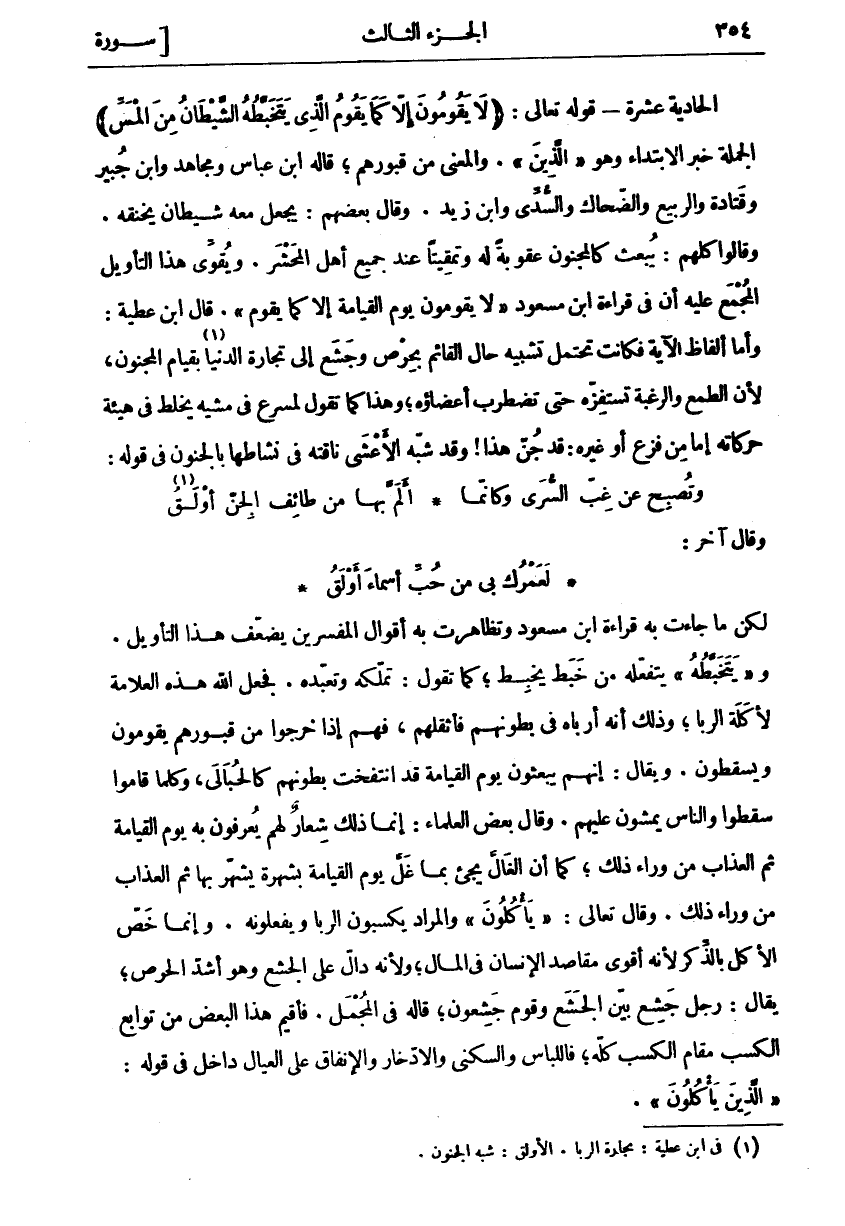 ٣٥٤ الجـزء الثـالث [ سـورة
الحادية عشرة — قوله تعالى : ﴿ لَا يَقُومُونَ إِلَّا كَمَا يَقُومُ الَّذِى يَتَخَبَّطُهُ الشَّيْطَانُ مِنَ الْمَسِّ ﴾
الجملة خبر الابتداء وهو « الَّذِينَ » . والمعنى من قبورهم ؛ قاله ابن عباس ومجاهد وابن جُبير
وقَتادة والربيع والضّحاك والسُّدِّى وابن زيد . وقال بعضهم : يجعل معه شـيطان يخنقه .
وقالوا كلهم : يُبعث كالمجنون عقوبةً له وتمقيتًا عند جميع أهل المَحْشَر . ويُقوِّى هذا التأويل
المُجْمَع عليه أن فى قراءة ابن مسعود « لا يقومون يوم القيامة إلا كما يقوم » . قال ابن عطية :
وأما ألفاظ الآية فكانت تحتمل تشبيه حال القائم بحِرْص وجَشَع إلى تجارة الدنيا(١) بقيام المجنون ،
لأن الطمع والرغبة تستفِزّه حتى تضطرب أعضاؤه ؛ وهذا كما تقول لمسرع فى مشيه يخلط فى هيئة
حركاته إما مِن فزع أو غيره : قد جُنّ هذا ! وقد شبّه الأَعْشَى ناقته فى نشاطها بالجنون فى قوله :
وتُصبِح عن غِبّ السُّرَى وكأنّمـا * أَلَمَّ بهـا من طائِف الجِنّ أَوْلَـقُ(١)
وقال آخر :
* لَعَمْرُك بى من حُبِّ أسماءَ أَوْلَقُ *
لكن ما جاءت به قراءة ابن مسعود وتظاهرت به أقوال المفسرين يضعّف هـذا التأويل .
و « يَتَخَبَّطُهُ » يتفعّله من خَبَط يخبِـط ؛ كما تقول : تملّكه وتعبّده . فجعل الله هـذه العلامة
لأَكَلَة الربا ؛ وذلك أنه أرباه فى بطونهـم فأثقلهم ، فهـم إذا خرجوا من قبـورهم يقومون
ويسقطون . ويقال : إنهـم يبعثون يوم القيامة قد انتفخت بطونهم كالحُبَالَى ، وكلما قاموا
سقطوا والناس يمشون عليهم . وقال بعض العلماء : إنمـا ذلك شِعارٌ لهم يُعرفون به يوم القيامة
ثم العذاب من وراء ذلك ؛ كما أن الغَالَّ يجئ بمـا غَلَّ يوم القيامة بشهرة يشهّر بها ثم العذاب
من وراء ذلك . وقال تعالى : « يَأْكُلُونَ » والمراد يكسبون الربا ويفعلونه . وإنمـا خَصّ
الأكل بالذِّكر لأنه أقوى مقاصد الإنسان فى المـال ؛ ولأنه دالّ على الجشع وهو أشدّ الحرص ؛
يقال : رجل جَشِع بيّن الجَشَع وقوم جَشِعون ؛ قاله فى المُجْمَل . فأقيم هذا البعض من توابع
الكسب مقام الكسب كلّه ؛ فاللباس والسكنى والادّخار والإنفاق على العيال داخل فى قوله :
« الَّذِينَ يَأْكُلُونَ » .
(١) فى ابن عطية : تجارة الربا . الأولق : شبه الجنون .